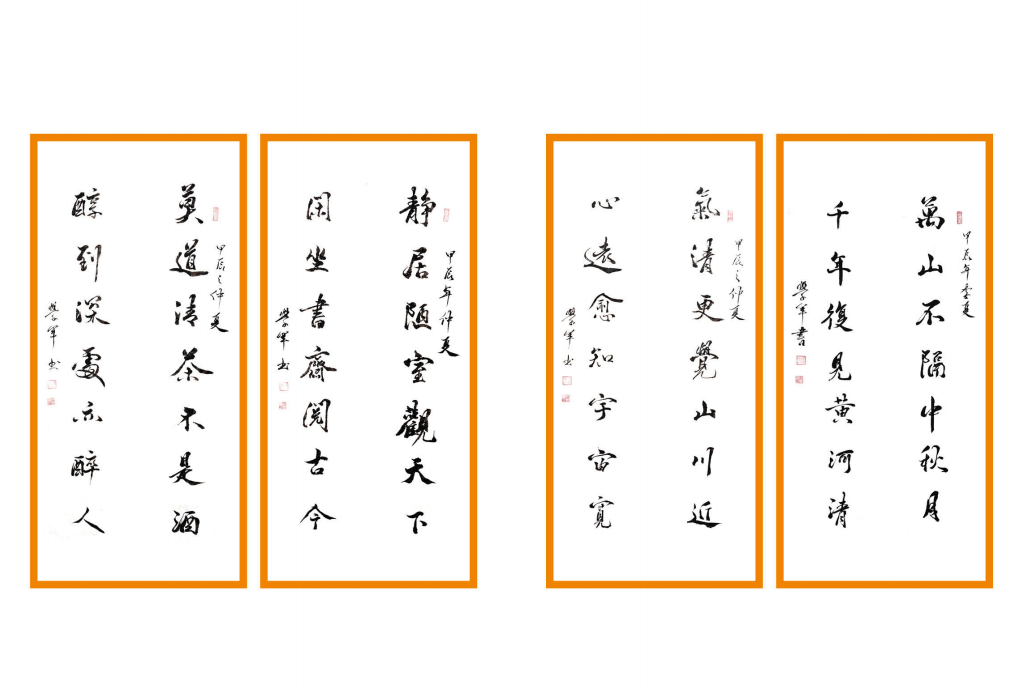 甲辰年季夏
萬山不隔中秋月
千年復見黄河清
學軍書
甲辰之仲夏
氣清更覺山川近
心遠愈知宇宙寬
學軍书
甲辰年仲夏
静居陋室觀天下
閑坐書齋閱古今
學軍书
甲辰之仲夏
莫道清茶不是酒
醇到深處亦醉人
學軍书